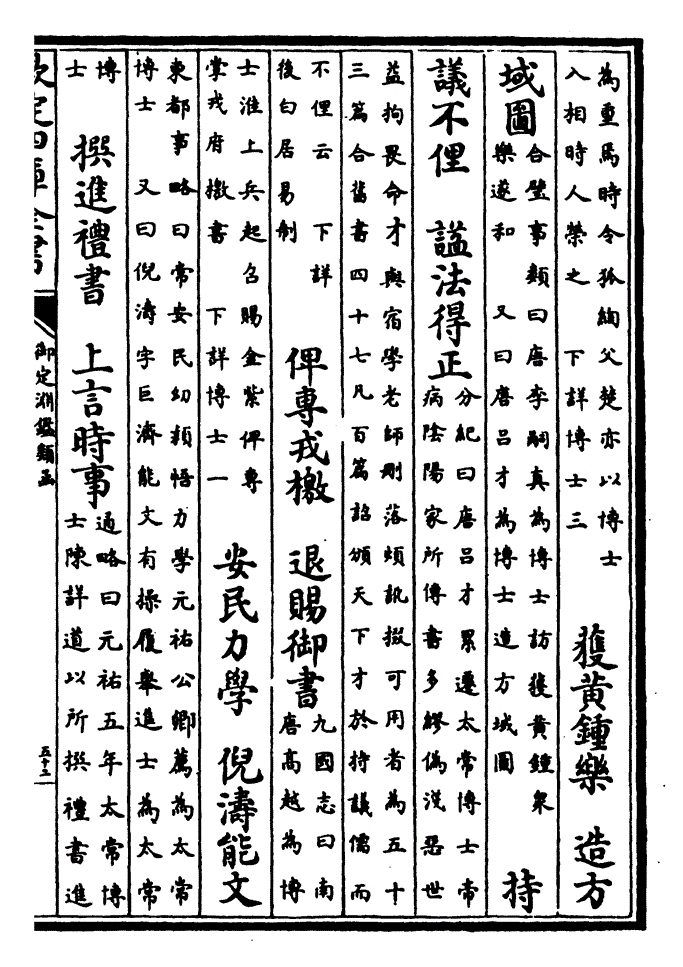 為重焉時令狐綯父楚亦以博士
入相時人榮之　下詳博士三
獲黄鍾樂　造方
域圖
合璧事類曰唐李嗣真為博士訪獲黄鍾衆
樂遂和　又曰唐呂才為博士造方域圖
持
議不俚　諡法得正
分紀曰唐呂才累遷太常博士帝
病陰陽家所傳書多繆偽淺惡世
益拘畏命才與宿學老師刪落煩訛掇可用者為五十
三篇合舊書四十七凡百篇詔頒天下才於持議儒而
不俚云　下詳
後白居易制
俾專戎檄　退賜御書
九國志曰南
唐高越為博
士淮上兵起召賜金紫俾專
掌戎府檄書　下詳博士一
安民力學　倪濤能文
東都事略曰常安民幼穎悟力學元祐公卿薦為太常
博士　又曰倪濤字巨濟能文有操履舉進士為太常
博
士
撰進禮書　上言時事
通略曰元祐五年太常博
士陳詳道以所撰禮書進
欽定四庫全書
御定淵鑑類函
五十三